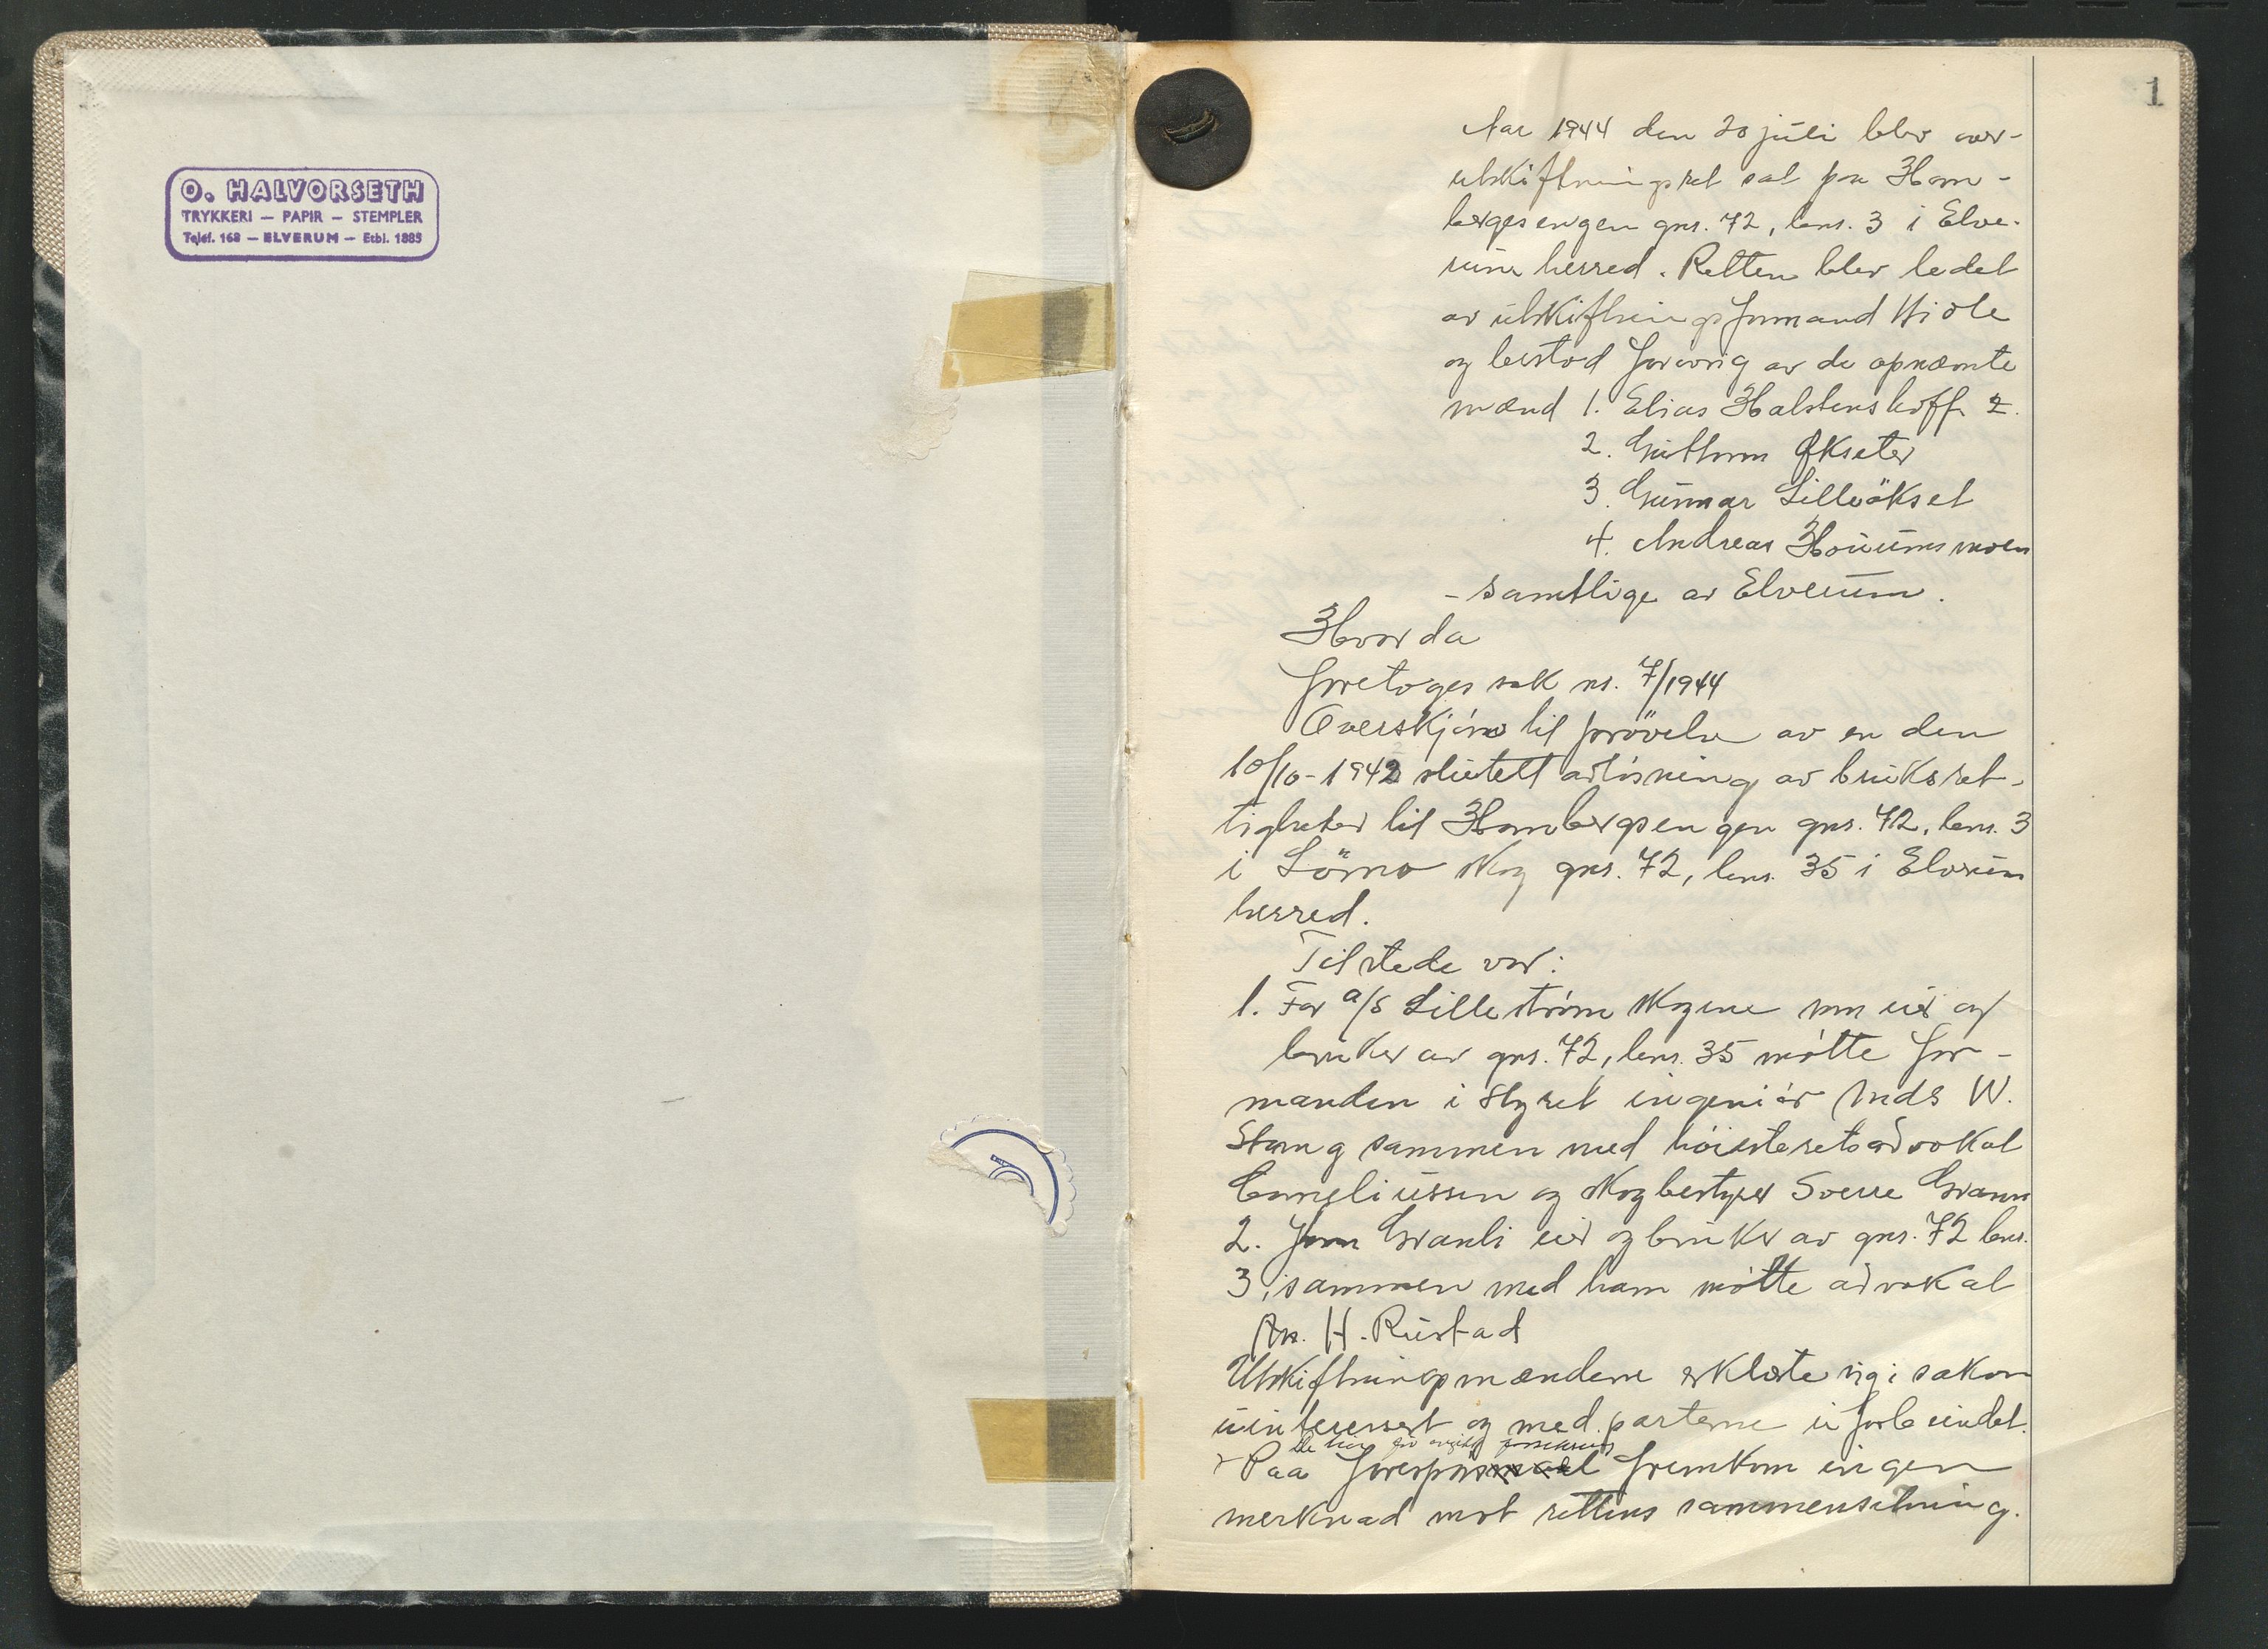 O. HALVORSETH
TRYKKERI — PAPIR — STEMPLER
Telef. 168 — ELVERUM — Etbl. 1885
1
Aar 1944 den 20 juli blev over-
utskiftningsret sat paa Ham-
bergsengen gnr. 72, bnr. 3 i Elve-
rum herred. Retten blev ledet
av utskiftningsformand Hiole
og bestod forøvrig av de opnæmte
mænd 1. Elias Halstenshoff 2.
2. Guttorm Økseter
3. Gunnar Lilleökset
4. Andreas Hornmsmoen
- samtlige av Elverum.
Hvor da
foretoges sak nr. 7/1944
Overskjøn til prövelse av en den
10/10-1942 sluttett avløsning av bruksret-
tigheter til Hambergsengen gnr. 72, bnr. 3
i Lömo skog gnr. 72, bnr. 35 i Elverum
herred.
Tilstede var:
1. For a/s Lillestrøm skogene som eier og
bruker av gnr. 72, bnr. 35 møtte for-
manden i styret ingeniør Mads W.
Stang sammen med høiesteretsadvokat
Corneliussen og skogbestyrer Sverre Grann
2. Jon Granli eier og bruker av gnr. 72 bnr.
3, sammen med ham møtte advokat
An. H. Rustad
Utskiftningsmændene erklærte sig i saken
uinteressert og med parterne uforbundet.
De har før avgitt forsikring
Paa forespørsmaal fremkom ingen
merknad mot rettens sammensetning.